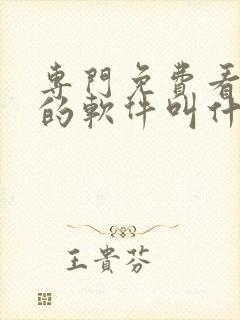 專門免費看
的軟件叫什
王貴芬